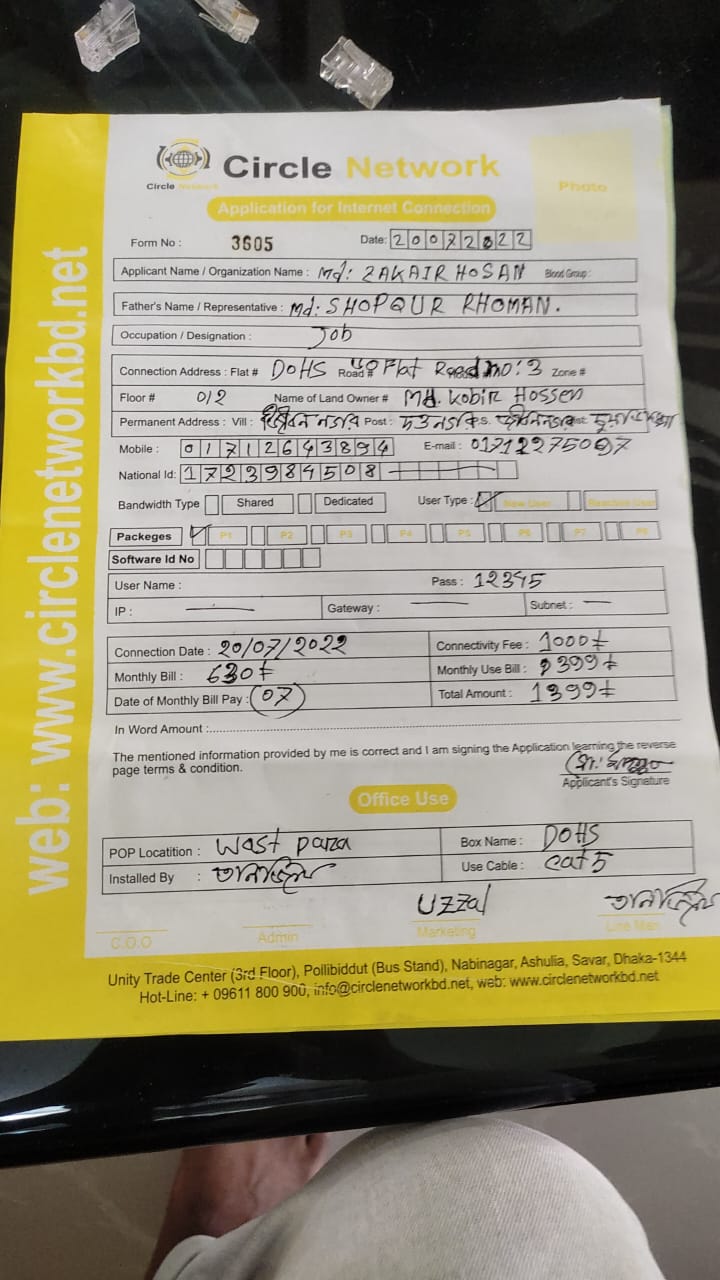 web: www.circlenetworkbd.net
Circle Network
Circle Network
Photo
Application for Internet Connection
Form No : 3605 Date: 20072022
Applicant Name / Organization Name : Md: ZAKAIR HOSAN Blood Group :
Father's Name / Representative : Md: SHOPQUR RHOMAN.
Occupation / Designation : Job
Connection Address : Flat # DOHS Road # Flat Road no: 3 Zone #
Floor # 0/2 Name of Land Owner # Md. Kobir Hossen
Permanent Address : Vill : নগর Post :
Mobile : 01712643894 E-mail : 01712275097
National Id: 1723984508
Bandwidth Type Shared Dedicated User Type : New User Reactive User
Packeges P1 P2 P3 P4 P5 P6 P7 P8
Software Id No
User Name : Pass : 12345
IP : Gateway : Subnet :
Connection Date : 20/07/2022 Connectivity Fee : 1000৳
Monthly Bill : 630৳ Monthly Use Bill : 399৳
Date of Monthly Bill Pay : 07 Total Amount : 1399৳
In Word Amount :
The mentioned information provided by me is correct and I am signing the Application learning the reverse
page terms & condition.
Applicant's Signature
Office Use
POP Locatition : West para Box Name : DOHS
Installed By : Use Cable : cat5
Uzzal
C.O.O Admin Marketing Line Man
Unity Trade Center (3rd Floor), Pollibiddut (Bus Stand), Nabinagar, Ashulia, Savar, Dhaka-1344
Hot-Line: + 09611 800 900, info@circlenetworkbd.net, web: www.circlenetworkbd.net